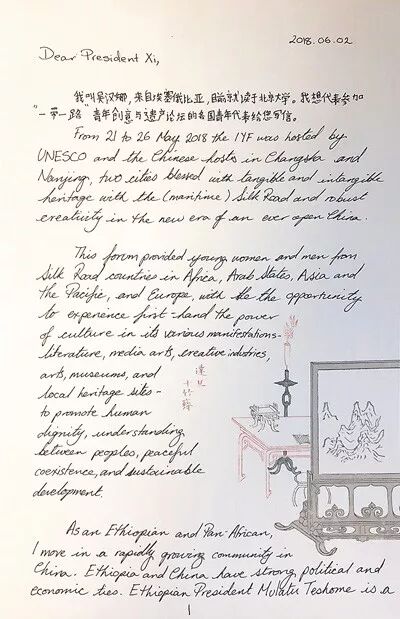 2018.06.02
Dear President Xi,
我叫吴汉娜，来自埃塞俄比亚，目前就读于北京大学。我想代表参加
“一带一路”青年创意与遗产论坛的各国青年代表给您写信。
From 21 to 26 May 2018 the IYF was hosted by
UNESCO and the Chinese hosts in Changsha and
Nanjing, two cities blessed with tangible and intangible
heritage with the (maritime) Silk Road and robust
creativity in the new era of an ever open China.
This forum provided young women and men from
Silk Road countries in Africa, Arab States, Asia and
the Pacific, and Europe, with the the opportunity
to experience first-hand the power
of culture in its various manifestations-
literature, media arts, creative industries,
arts, museums, and
local heritage sites-
to promote human
dignity, understanding
between peoples, peaceful
coexistence, and sustainable
development.
十竹齋
As an Ethiopian and Pan-African,
I move in a rapidly growing community in
China. Ethiopia and China have strong political and
economic ties. Ethiopian President Mulatu Teshome is a
1